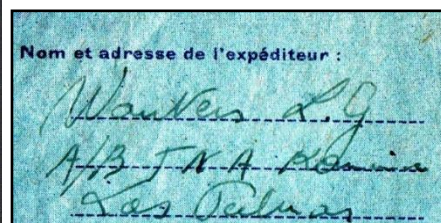 Nom et adresse de l'expéditeur :
Wauters L.G
A/B T N A
Las Palmas